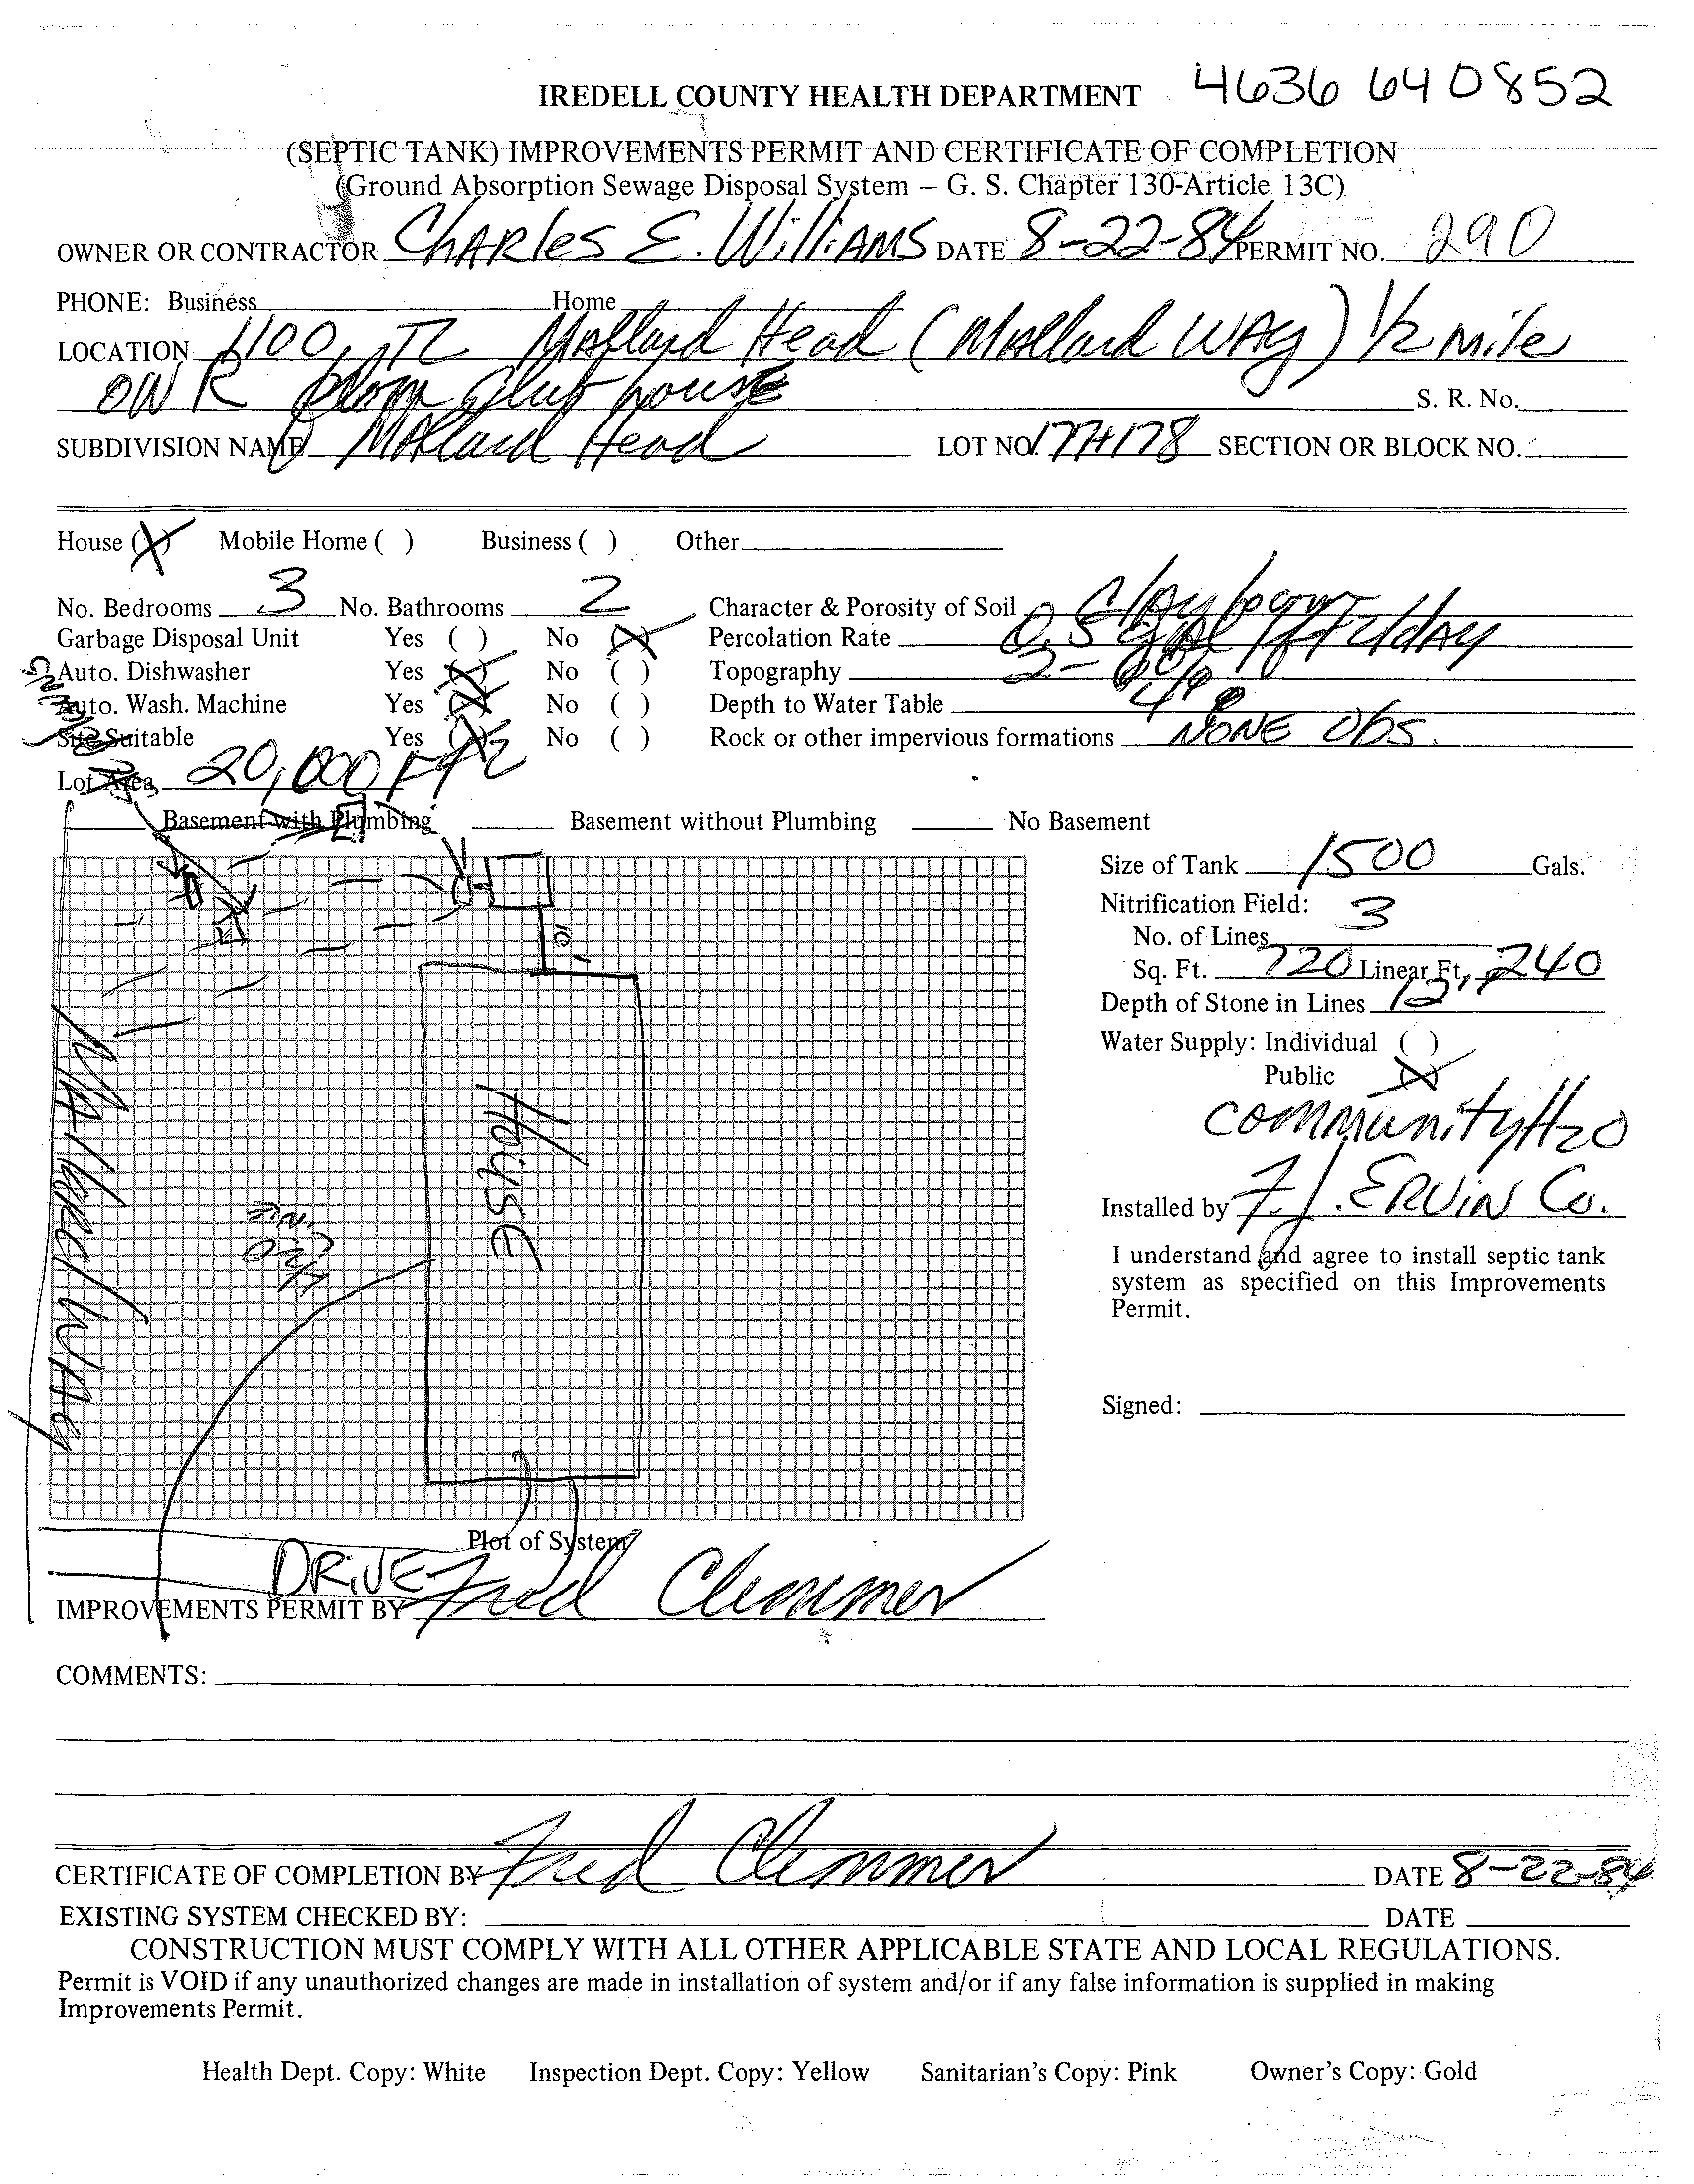 IREDELL COUNTY HEALTH DEPARTMENT 4636 64 0852
(SEPTIC TANK) IMPROVEMENTS PERMIT AND CERTIFICATE OF COMPLETION
(Ground Absorption Sewage Disposal System – G. S. Chapter 130-Article 13C)
OWNER OR CONTRACTOR Charles E. Williams DATE 8-22-84 PERMIT NO. 290
PHONE: Business Home
LOCATION 1100 TL Mallard Head (Mallard Way) 1/2 mile
ON R from Club house S. R. No.
SUBDIVISION NAME Mallard Head LOT NO. 177+178 SECTION OR BLOCK NO.
House (X) Mobile Home ( ) Business ( ) Other
No. Bedrooms 3 No. Bathrooms 2 Character & Porosity of Soil Clay loam
Garbage Disposal Unit Yes ( ) No (X) Percolation Rate 0.5 gal/ft2/day
Auto. Dishwasher Yes (X) No ( ) Topography 2-6%
Auto. Wash. Machine Yes (X) No ( ) Depth to Water Table
Site Suitable Yes (X) No ( ) Rock or other impervious formations NONE Obs.
Lot Area 20,000 Ft2
Basement with Plumbing Basement without Plumbing No Basement
Size of Tank 1500 Gals.
Nitrification Field:
No. of Lines 3
Sq. Ft. 720 Linear Ft. 240
Depth of Stone in Lines 12"
Water Supply: Individual ( )
Public (X)
community H2O
Installed by F.J. ERVIN Co.
I understand and agree to install septic tank
system as specified on this Improvements
Permit.
Signed:
10'
House
Mallard Way
Plot of System
DRIVE
IMPROVEMENTS PERMIT BY Fred Clemmer
COMMENTS:
CERTIFICATE OF COMPLETION BY Fred Clemmer DATE 8-22-84
EXISTING SYSTEM CHECKED BY: DATE
CONSTRUCTION MUST COMPLY WITH ALL OTHER APPLICABLE STATE AND LOCAL REGULATIONS.
Permit is VOID if any unauthorized changes are made in installation of system and/or if any false information is supplied in making
Improvements Permit.
Health Dept. Copy: White Inspection Dept. Copy: Yellow Sanitarian's Copy: Pink Owner's Copy: Gold